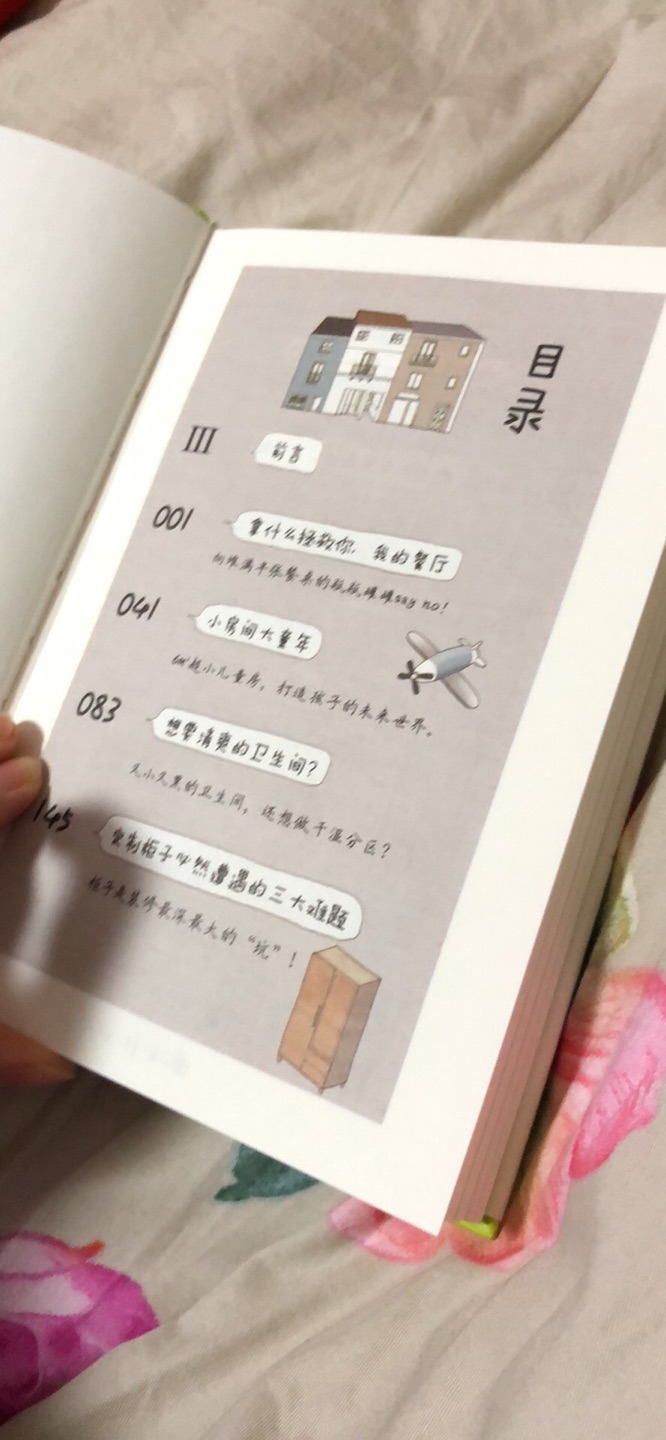 目录
III 前言
001 拿什么拯救你，我的餐厅
向堆满半张餐桌的瓶瓶罐罐say no!
041 小房间大童年
掀起小儿童房，打造孩子的未来世界。
083 想要清爽的卫生间？
又小又黑的卫生间，还想做干湿分区？
145 定制柜子必然遭遇的三大难题
柜子是装修最深最大的“坑”！